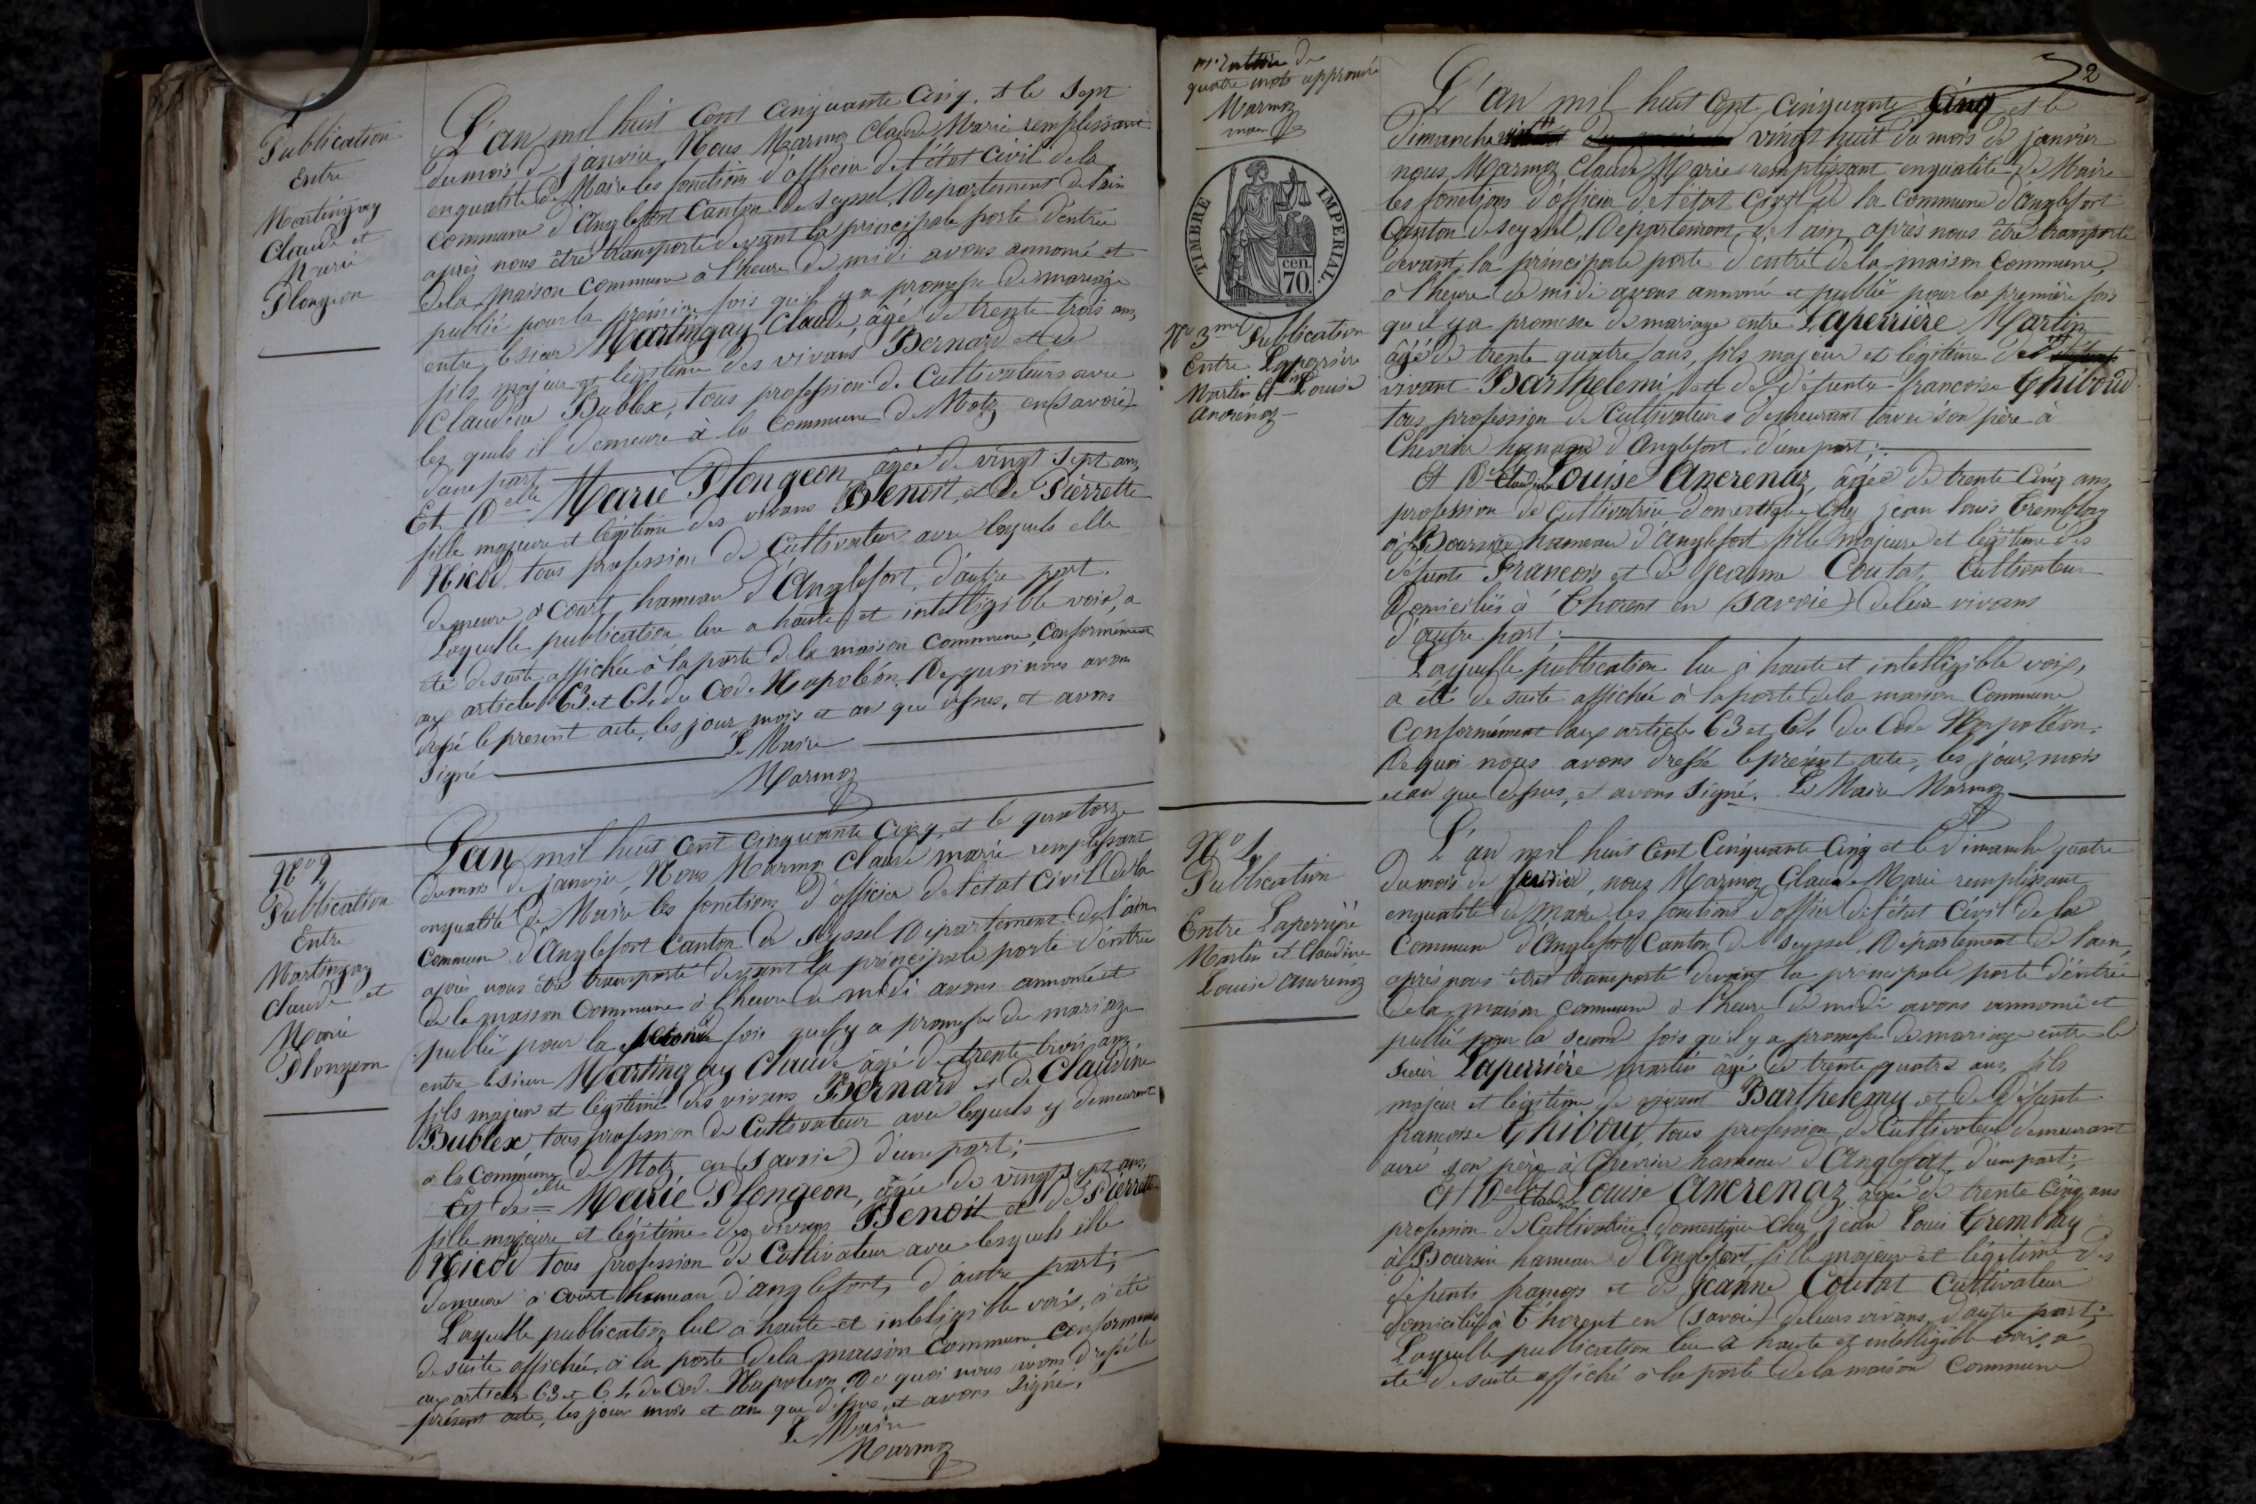 Publication
Entre
Martingay
Claude et
Marie
Plongeon
L'an mil huit cent cinquante cinq, et le sept
du mois de janvier, Nous Marmoz Claude Marie remplissant
en qualité de Maire les fonctions d'officier de l'état civil de la
commune d'Anglefort Canton de Seyssel, Département de l'ain
après nous être transporté devant la principale porte d'entrée
de la maison commune à l'heure de midi avons annoncé et
publié pour la première fois qu'il y a promesse de mariage
entre le sieur Martingay Claude, âgé de trente trois ans,
fils majeur et légitime des vivans Bernard et de
Claudine Bublex, tous profession de Cultivateurs avec
les quels il demeure à la Commune de Motz en (savoie)
d'une part;
Et Delle Marie Plongeon âgée de vingt sept ans,
fille majeure et légitime des vivans Benoit, et de Pierrette
Nicod, tous profession de Cultivateur avec lesquels elle
demeure à Court hameau d'Anglefort, d'autre part.
Laquelle publication lue a haute et intelligible voix, a
été de suite affichée à la porte de la maison commune, conformément
aux articles 63 et 64 du Code Napoléon. De quoi nous avons
dressé le présent acte, les jour, mois et an que dessus, et avons
signé Le Maire
Marmoz
No 2
Publication
Entre
Martingay
Claude et
Marie
Plongeon
L'an mil huit cent cinquante cinq, et le quatorze
du mois de janvier, Nous Marmoz Claude marie remplissant
en qualité de Maire les fonctions d'officier de l'état Civil de la
commune d'Anglefort Canton de Seyssel Département de l'ain
après nous être transporté devant la principale porte d'entrée
de la maison commune à l'heure de midi avons annoncé et
publié pour la seconde fois qu'il y a promesse de mariage
entre le sieur Martingay Claude âgé de trente trois ans,
fils majeur et légitime des vivans Bernard et de Claudine
Bublex, tous profession de Cultivateur avec lesquels y demeurant
à la Commune de Motz en (savoie) d'une part;
Et delle Marie Plongeon, âgée de vingt sept ans,
fille majeure et légitime des vivans Benoit et de Pierrette
Nicod tous profession de Cultivateur avec lesquels elle
demeure à Court hameau d'anglefort, d'autre part;
Laquelle publication lue à haute et intelligible voix, a été
de suite affichée, à la porte de la maison commune conformément
aux articles 63 et 64 du Code Napoléon, De quoi nous avons dressé le
présent acte, les jour mois et an que dessus, et avons signé.
Le Maire
Marmoz
2
quatre mots approuvée
Marmoz
TIMBRE IMPERIAL.
cen. 70.
No 3me Publication
Entre Laperrière
Martin et Louise
Ancrenaz
L'an mil huit cent cinquante cinq et le
dimanche vingt huit du mois de janvier
nous, Marmoz Claude Marie remplissant en qualité de Maire
les fonctions d'officier de l'état Civil de la Commune d'Anglefort
Canton de Seyssel, Département de l'ain, après nous être transporté
devant la principale porte d'entrée de la maison Commune,
à l'heure de midi avons annoncé et publié pour la première fois
qu'il y a promesse de mariage entre Laperrière Martin
âgé de trente quatre ans, fils majeur et légitime de
vivant Barthelemi et de défunte francoise Thiboud
tous profession de Cultivateurs demeurant avec son père à
Chevrier hameau d'Anglefort d'une part;
Et Delle Claudine Louise Ancrenaz, âgée de trente cinq ans,
profession de Cultivatrice domestique chez jean louis Tremblay
à Boursin hameau d'anglefort fille majeure et légitime des
défunts François et de Jeanne Coutat, Cultivateur
Domiciliés à Thorens en (savoie) de leur vivans
d'autre part;
Laquelle publication lue à haute et intelligible voix,
a été de suite affichée à la porte de la maison Commune
Conformément aux articles 63 et 64 du Code Napoléon.
De quoi nous avons dressé le présent acte, les jour, mois
et an que dessus, et avons signé. Le Maire Marmoz
No 4
Publication
Entre Laperrière
Martin et Claudine
Louise Ancrenaz
L'an mil huit cent cinquante cinq et le dimanche quatre
du mois de février, nous Marmoz Claude Marie remplissant
en qualité de Maire les fonctions d'officier de l'état Civil de la
Commune d'Anglefort Canton de Seyssel, Département de l'ain,
après nous être transporté devant la principale porte d'entrée
de la maison commune à l'heure de midi avons annoncé et
publié pour la seconde fois qu'il y a promesse de mariage entre le
sieur Laperrière martin âgé de trente quatre ans, fils
majeur et légitime de vivant Barthelemy et de défunte
francoise Thiboud, tous profession de Cultivateur demeurant
avec son père à Chevrier hameau d'Anglefort, d'une part;
Et Delle Louise Ancrenaz âgée de trente cinq ans
profession de Cultivatrice domestique chez jean Louis Tremblay
à Boursin hameau d'Anglefort, fille majeure et légitime des
défunts françois et de Jeanne Coutat Cultivateur
domicilié à Thorens en (savoie) de leurs vivans, d'autre part;
Laquelle publication lue à haute et intelligible voix, a
été de suite affiché à la porte de la maison Commune